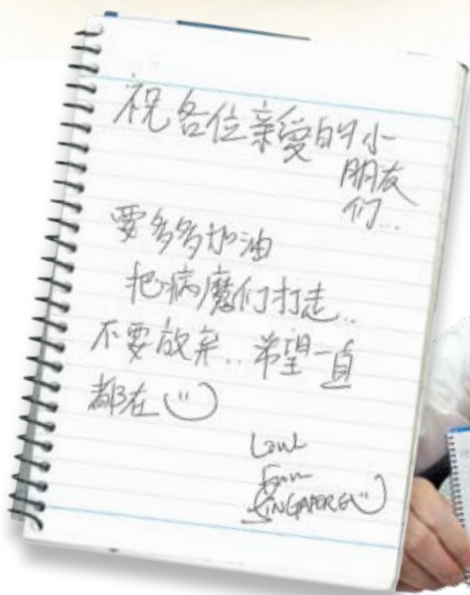 祝各位亲爱的小
朋友
们...
要多多加油
把病魔们打走..
不要放弃..希望一直
都在 :)
from
SINGAPORE :)